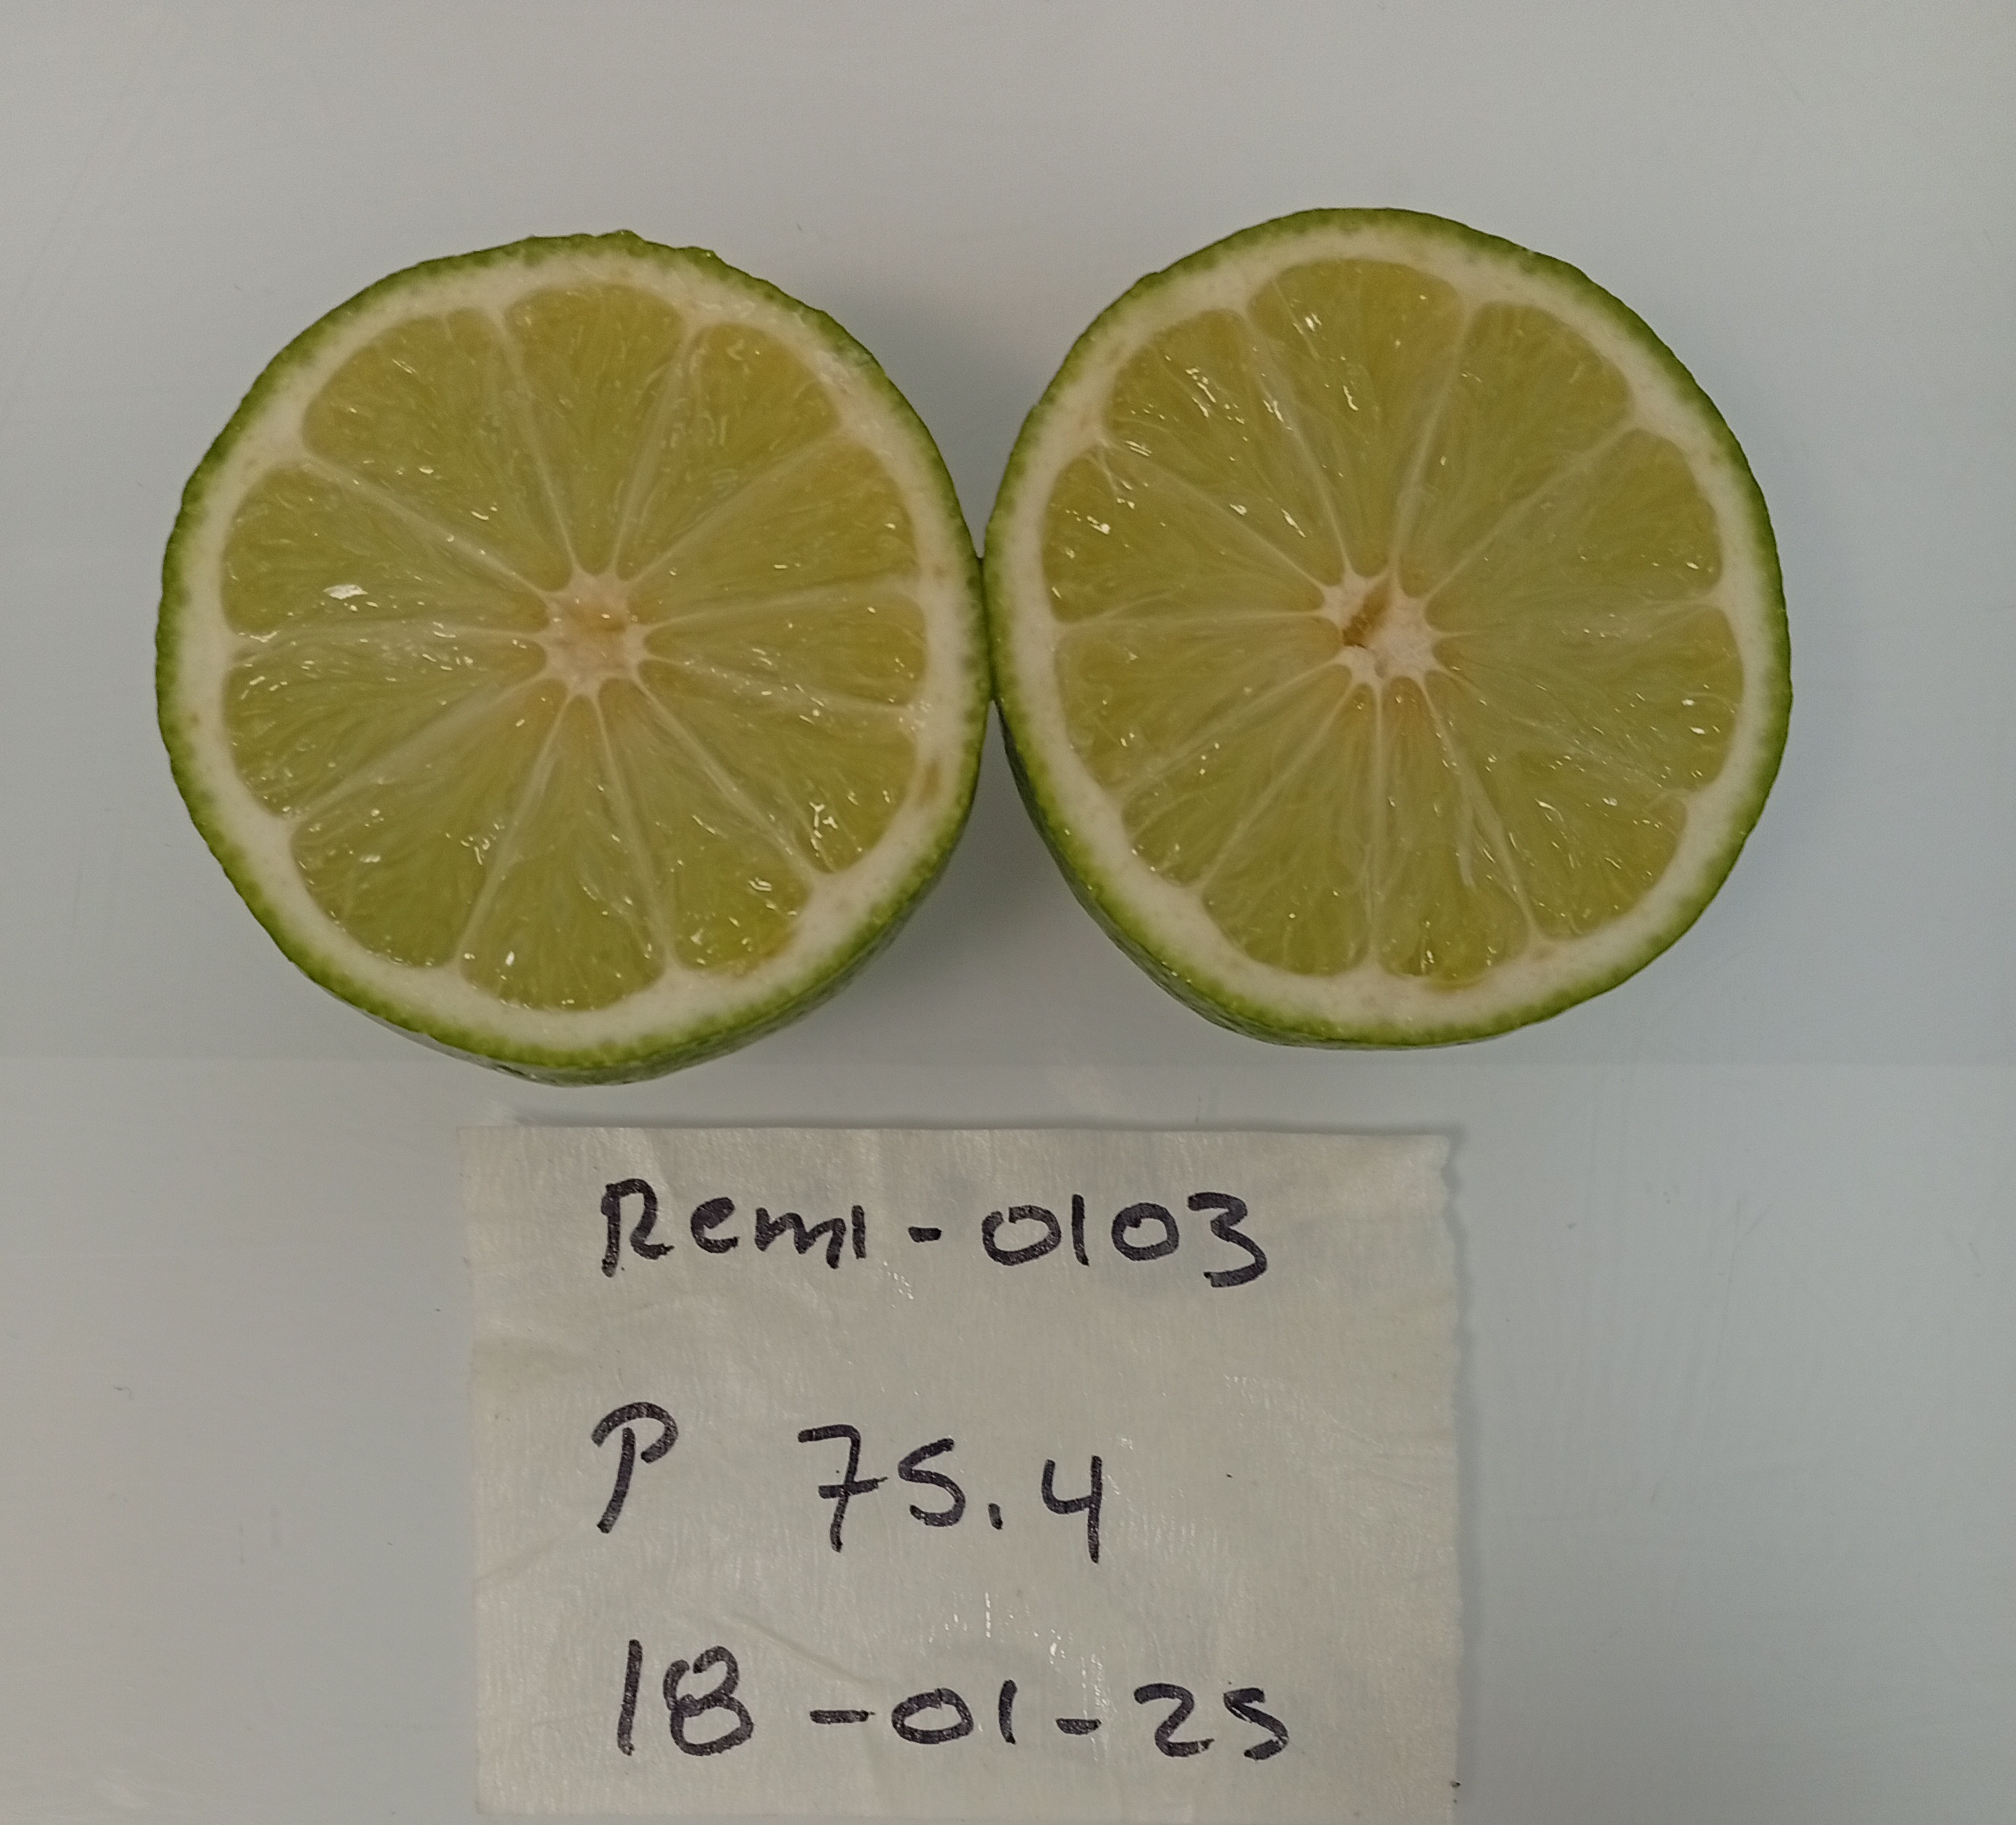 Remi-0103
P 75.4
18-01-25